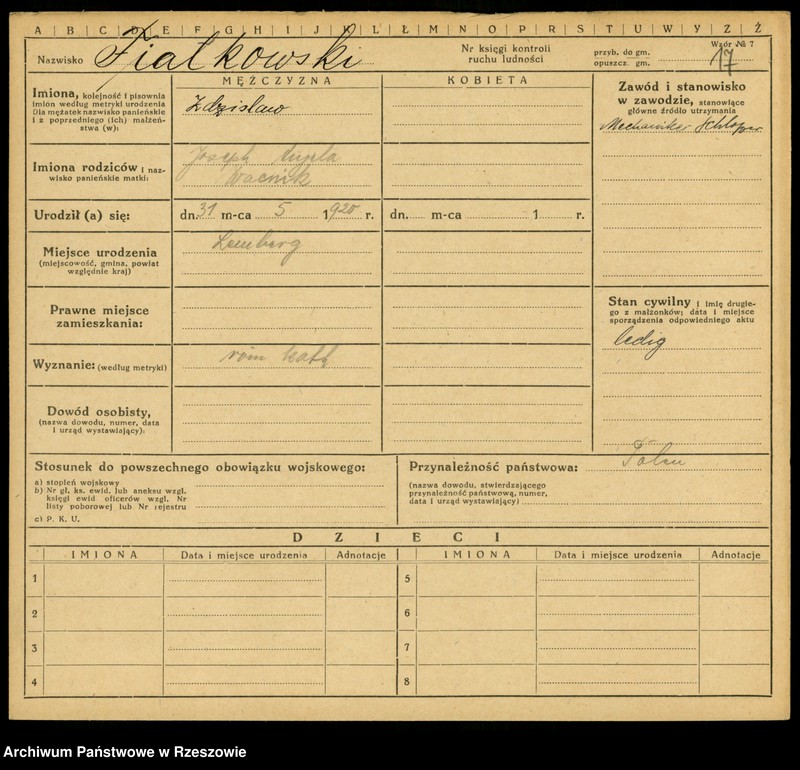 A | B | C | D | E | F | G | H | I | J | K | L | Ł | M | N | O | P | R | S | T | U | W | Y | Z | Ż
Nazwisko Fialkowski
Nr księgi kontroli ruchu ludności
przyb. do gm.
opuszcz. gm.
Wzór № 7
17
MĘŻCZYZNA
KOBIETA
Imiona, kolejność i pisownia
imion według metryki urodzenia
Dla mężatek nazwisko panieńskie
i z poprzedniego (ich) małżeń-
stwa (w):
Zdzisław
Zawód i stanowisko
w zawodzie, stanowiące
główne źródło utrzymania
Mechaniker Schlosser
Imiona rodziców i naz-
wisko panieńskie matki:
Joseph
Wacnik
Urodził (a) się:
dn. 31 m-ca 5 1920 r.
dn. m-ca 1 r.
Miejsce urodzenia
(miejscowość, gmina, powiat
względnie kraj)
Lemberg
Prawne miejsce
zamieszkania:
Stan cywilny i imię drugie-
go z małżonków; data i miejsce
sporządzenia odpowiedniego aktu
ledig
Wyznanie: (według metryki)
röm kath
Dowód osobisty,
(nazwa dowodu, numer, data
i urząd wystawiający):
Stosunek do powszechnego obowiązku wojskowego:
a) stopień wojskowy
b) Nr gł. ks. ewid. lub aneksu wzgl.
księgi ewid oficerów wzgl. Nr
listy poborowej lub Nr rejestru
c) P. K. U.
Przynależność państwowa: Polen
(nazwa dowodu, stwierdzającego
przynależność państwową, numer,
data i urząd wystawiający)
DZIECI
IMIONA
Data i miejsce urodzenia
Adnotacje
IMIONA
Data i miejsce urodzenia
Adnotacje
1
5
2
6
3
7
4
8
Archiwum Państwowe w Rzeszowie